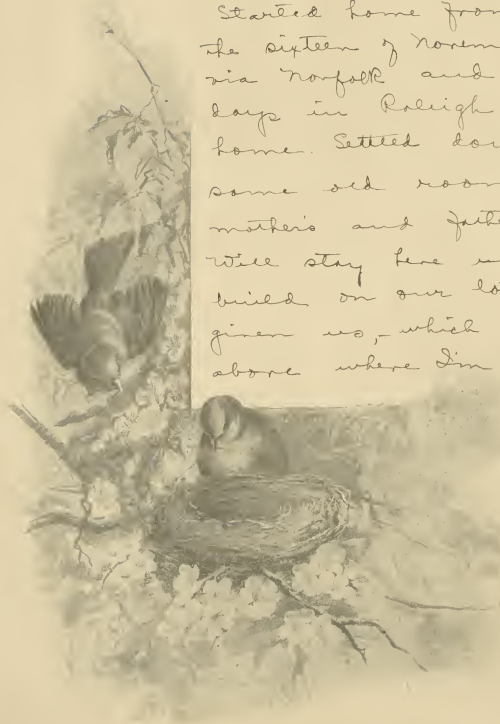 Started home from
the sixteen of Novem
via Norfolk and
days in Raleigh
home. Settled dow
some old room
mother's and fathe
Will stay here u
build on our lo
given us,- which
above where I'm